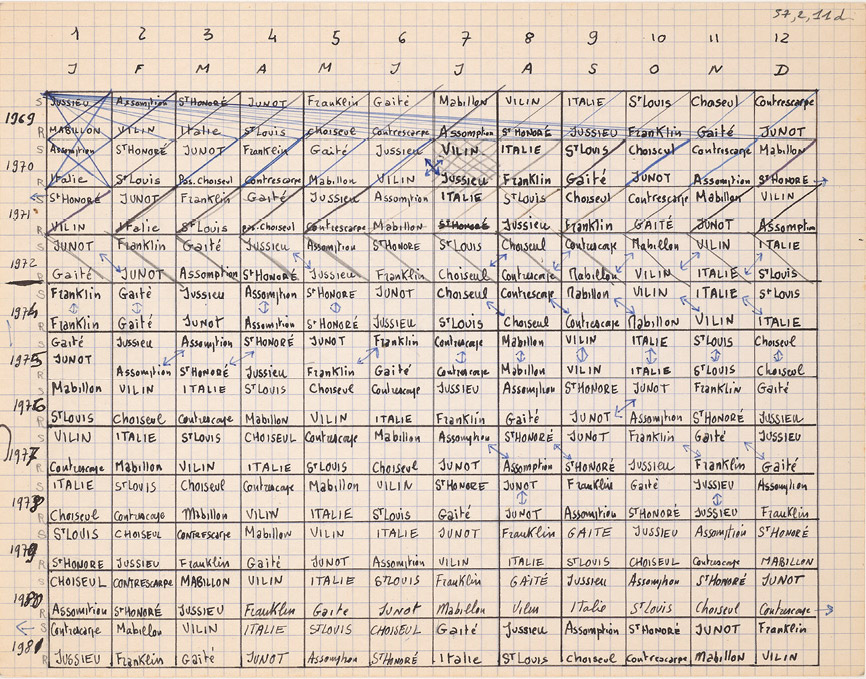 57, 2, 11 d
1 2 3 4 5 6 7 8 9 10 11 12
J F M A M J J A S O N D
S JUSSIEU Assomption St HONORÉ JUNOT Franklin Gaité Mabillon VILIN ITALIE St LOUIS Choiseul Contrescarpe
1969
R MABILLON VILIN Italie St Louis Choiseul Contrescarpe Assomption St HONORÉ JUSSIEU Franklin Gaité JUNOT
S Assomption St HONORÉ JUNOT Franklin Gaité Jussieu VILIN ITALIE St LOUIS Choiseul Contrescarpe Mabillon
1970
R Italie St Louis Pas. Choiseul Contrescarpe Mabillon VILIN Jussieu Franklin Gaité JUNOT Assomption St HONORE
S St HONORÉ JUNOT Franklin Gaité Jussieu Assomption ITALIE St LOUIS Choiseul Contrescarpe Mabillon VILIN
1971
R VILIN Italie St Louis pas. Choiseul Contrescarpe Mabillon St HONORÉ Jussieu Franklin GAITÉ JUNOT Assomption
S JUNOT Franklin Gaité Jussieu Assomption St HONORE St LOUIS Choiseul Contrescarpe Mabillon VILIN ITALIE
1972
R Gaité JUNOT Assomption St HONORE Jussieu Franklin Choiseul Contrescarpe Mabillon VILIN ITALIE St LOUIS
S Franklin Gaité Jussieu Assomption St HONORE JUNOT Choiseul Contrescarpe Mabillon VILIN ITALIE St LOUIS
1974
R Franklin Gaité JUNOT Assomption St HONORÉ JUSSIEU St LOUIS Choiseul Contrescarpe Mabillon VILIN ITALIE
S Gaité Jussieu Assomption St HONORÉ JUNOT Franklin Contrescarpe Mabillon VILIN ITALIE St LOUIS Choiseul
1975
R JUNOT Assomption St HONORÉ Jussieu Franklin Gaité Contrescarpe Mabillon VILIN ITALIE St LOUIS Choiseul
S Mabillon VILIN ITALIE St LOUIS Choiseul Contrescarpe JUSSIEU Assomption St HONORE JUNOT Franklin Gaité
1976
R St LOUIS Choiseul Contrescarpe Mabillon VILIN ITALIE Franklin Gaité JUNOT Assomption St HONORÉ JUSSIEU
S VILIN ITALIE St LOUIS CHOISEUL Contrescarpe Mabillon Assomption St HONORÉ JUNOT Franklin Gaité JUSSIEU
1977
R Contrescarpe Mabillon VILIN ITALIE St LOUIS Choiseul JUNOT Assomption St HONORÉ JUSSIEU Franklin Gaité
S ITALIE St LOUIS Choiseul Contrescarpe Mabillon VILIN St HONORE JUNOT Franklin Gaité JUSSIEU Assomption
1978
R Choiseul Contrescarpe Mabillon VILIN ITALIE St LOUIS Gaité JUNOT Assomption St HONORÉ JUSSIEU Franklin
S St LOUIS CHOISEUL CONTRESCARPE Mabillon VILIN ITALIE JUNOT Franklin GAITE JUSSIEU Assomption St HONORÉ
1979
R St HONORE JUSSIEU Franklin Gaité JUNOT Assomption VILIN ITALIE St LOUIS CHOISEUL Contrescarpe MABILLON
S CHOISEUL CONTRESCARPE MABILLON VILIN ITALIE St LOUIS Franklin GAITÉ Jussieu Assomption St HONORÉ JUNOT
1980
R Assomption St HONORÉ JUSSIEU Franklin Gaite JUNOT Mabillon Vilin Italie St LOUIS Choiseul Contrescarpe
S Contrescarpe Mabillon VILIN ITALIE St LOUIS CHOISEUL Gaité Jussieu Assomption St HONORÉ JUNOT Franklin
1981
R JUSSIEU Franklin Gaité JUNOT Assomption St HONORÉ Italie St LOUIS Choiseul Contrescarpe Mabillon VILIN